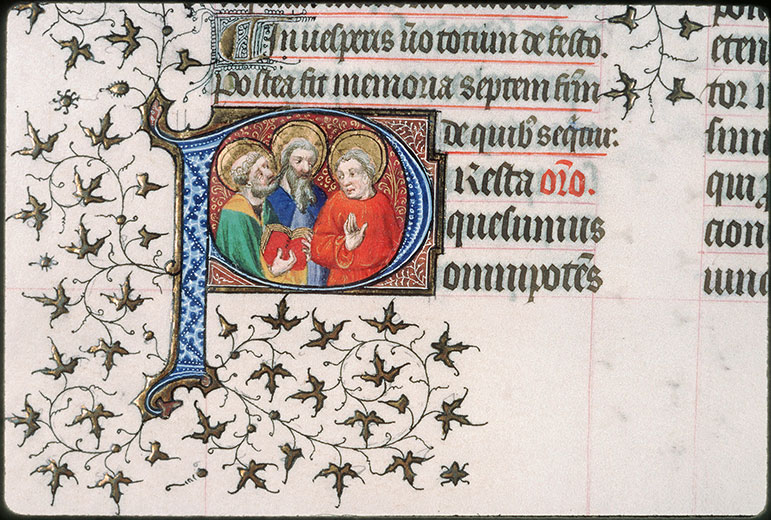 In uesperis ůo totum de festo.
Postea fit memoria septem fr̃m
de quibꝰ seq̃tur:
PResta or̃o.
quesumus
omnipotẽs
eten
tor
simi
qui
cion